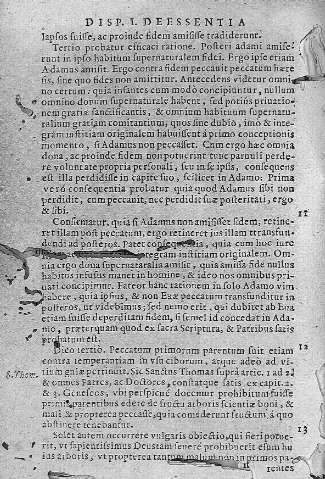 DISP. I. DE ESSENTIA
lapsos fuisse, ac proinde fidem amisisse tradiderunt.
Tertio probatur efficaci ratione. Posteri adami amise-
runt in ipso habitum supernaturalem fidei. Ergo ipse etiam
Adamus amisit. Ergo contra fidem peccauit peccatum hære
sis, sine quo fides non amittitur. Antecedens videtur omni
no certum: quia infantes cum modò concipiuntur, nullum
omnino donum supernaturale habent, sed potiùs priuatio-
nem gratiæ sanctificantis, & omnium habituum supernatu-
ralium gratiam comitantium, quos sine dubio, imò & inte-
gram iustitiam originalem habuissent à primo conceptionis
momento, si Adamus non peccasset. Cum ergo hæc omnia
dona, ac proinde fidem non potuerint tunc paruuli perde-
re voluntate propria personali, seu in se ipsis, consequens
est illa perdidisse in capite suo, scilicet in Adamo. Prima
verò consequentia probatur quia quod Adamus sibi non
perdidit, cum peccauit, nec perdidit suæ posteritati, ergo
& sibi.
11
Confirmatur, quia si Adamus non amisisset fidem, retine-
ret illam post peccatum, ergo retineret ius illam transfun-
dendi ad posteros. Patet consequentia, quia cum hoc iure
integram iustitiam originalem. Om-
nia ergo dona supernaturalia amisit, quia amissa fide nullus
habitus infusus manet in homine, & ideo nos omnibus pri-
uati concipimur. Fateor hanc rationem in solo Adamo vim
habere, quia ipsius, & non Euæ peccatum transfunditur in
posteros, ut videbimus; sed nemo erit, qui dubitet ab Eua
etiam fuisse deperditam fidem, si semel id concedat in Ada-
mo, præterquam quod ex sacra Scriptura, & Patribus satis
probatum est.
12
Dico tertiò. Peccatum primorum parentum fuit etiam
contra temperantiam in vsu ciborum, atque adeò ad vi-
tium gulæ pertinuit. Sic Sanctus Thomas supra artic. 1 ad 2.
S. Thom.
& omnes Patres, ac Doctores, constatque satis ex capit. 2.
& 3. Geneseos, vbi perspicuè docemur prohibitum fuisse
primis parentibus edere de fructu arboris scientiæ boni, &
mali: & propterea peccasse, quia comederunt fructum à quo
abstinere tenebantur.
13
Solet autem occurrere vulgaris obiectio, qui fieri potue-
rit, vt sapientissimus Deus tam seuerè prohibuerit esum hu
ius ciboris, vt propterea tantum malum non in primos pa-
rentes